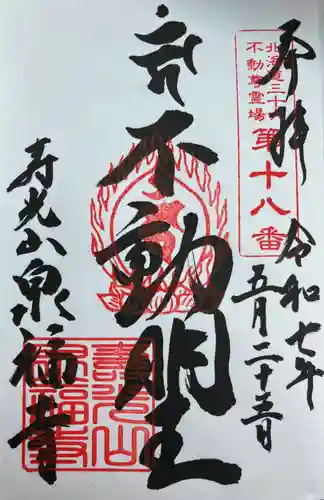 奉拝
北海道三十六
不動尊霊場
第十八番
令和七年
五月二十三日
不動明王
寿光山泉福寺